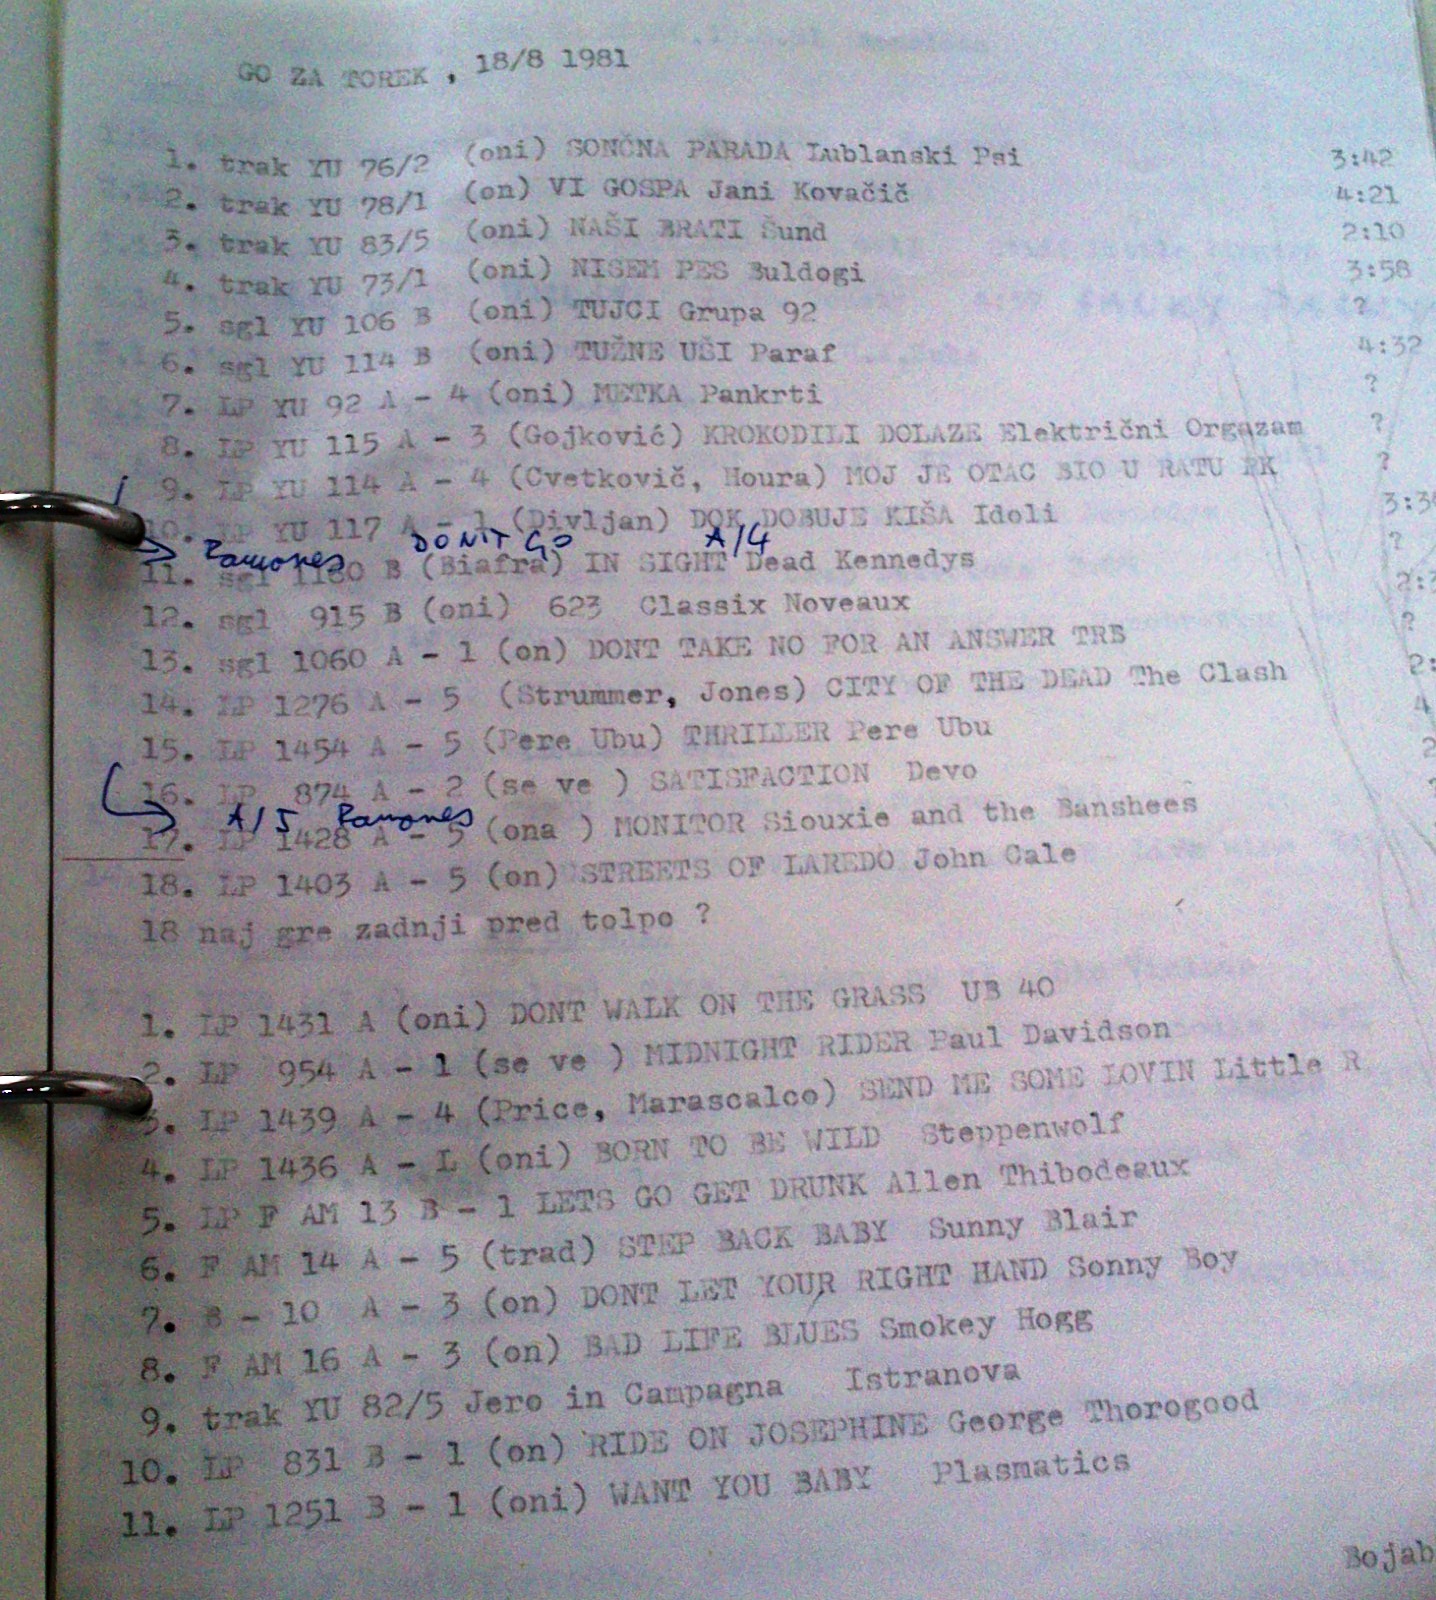 GO ZA TOREK , 18/8 1981
1. trak YU 76/2 (oni) SONČNA PARADA Lublanski Psi 3:42
2. trak YU 78/1 (on) VI GOSPA Jani Kovačič 4:21
3. trak YU 83/5 (oni) NAŠI BRATI Šund 2:10
4. trak YU 73/1 (oni) NISEM PES Buldogi 3:58
5. sgl YU 106 B (oni) TUJCI Grupa 92 ?
6. sgl YU 114 B (oni) TUŽNE UŠI Paraf 4:32
7. LP YU 92 A - 4 (oni) METKA Pankrti ?
8. LP YU 115 A - 3 (Gojković) KROKODILI DOLAZE Električni Orgazam ?
9. LP YU 114 A - 4 (Cvetkovič, Houra) MOJ JE OTAC BIO U RATU PK ?
10. LP YU 117 A - 1 (Divljan) DOK DOBUJE KIŠA Idoli
Ramones DON'T GO A/4
11. sgl 1180 B (Biafra) IN SIGHT Dead Kennedys ?
12. sgl 915 B (oni) 623 Classix Noveaux
13. sgl 1060 A - 1 (on) DONT TAKE NO FOR AN ANSWER TRB ?
14. LP 1276 A - 5 (Strummer, Jones) CITY OF THE DEAD The Clash
15. LP 1454 A - 5 (Pere Ubu) THRILLER Pere Ubu
16. LP 874 A - 2 (se ve ) SATISFACTION Devo
A/5 Ramones
17. LP 1428 A - 5 (ona ) MONITOR Siouxie and the Banshees
18. LP 1403 A - 5 (on) STREETS OF LAREDO John Cale
18 naj gre zadnji pred tolpo ?
1. LP 1431 A (oni) DONT WALK ON THE GRASS UB 40
2. LP 954 A - 1 (se ve ) MIDNIGHT RIDER Paul Davidson
3. LP 1439 A - 4 (Price, Marascalco) SEND ME SOME LOVIN Little R
4. LP 1436 A - L (oni) BORN TO BE WILD Steppenwolf
5. LP F AM 13 B - 1 LETS GO GET DRUNK Allen Thibodeaux
6. F AM 14 A - 5 (trad) STEP BACK BABY Sunny Blair
7. B - 10 A - 3 (on) DONT LET YOUR RIGHT HAND Sonny Boy
8. F AM 16 A - 3 (on) BAD LIFE BLUES Smokey Hogg
9. trak YU 82/5 Jero in Campagna Istranova
10. LP 831 B - 1 (on) RIDE ON JOSEPHINE George Thorogood
11. LP 1251 B - 1 (oni) WANT YOU BABY Plasmatics
Bojab